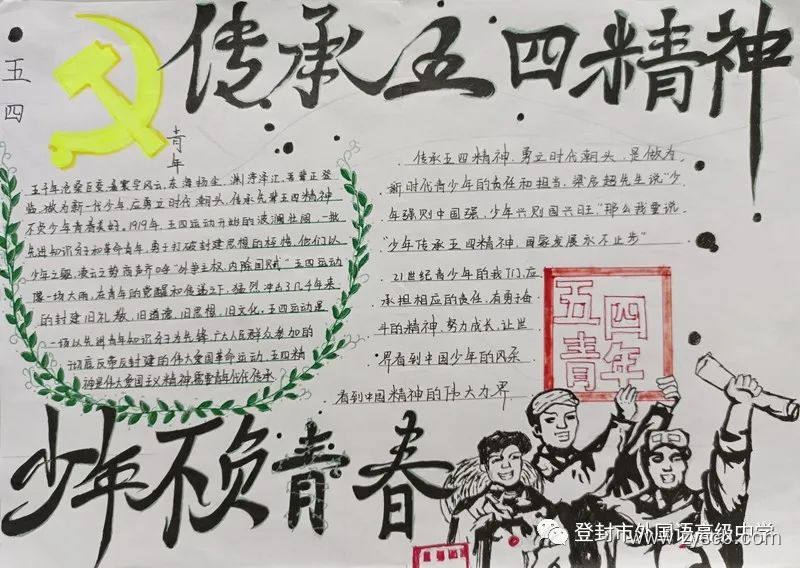 传承五四精神
五四
青年
五千年沧桑巨变,看寰宇风云,东海扬金,渊渟泽汇,吾辈正登
临,做为新一代少年,应勇立时代潮头,传承先辈五四精神
不负少年青春美好。1919年,五四运动开始的波澜壮阔,一批
先进知识分子和革命青年,勇于打破封建思想的桎梏,他们以
少年之躯,凌云之势高声呼"外争主权,内除国贼"五四运动
像一场大雨,在青年的觉醒和传递之下,猛烈冲击了几千年来
的封建旧礼教,旧道德,旧思想,旧文化,五四运动是
一场以先进青年知识分子为先锋,广大人民群众参加的
彻底反帝反封建的伟大爱国革命运动,五四精
神是伟大爱国主义精神,需要青年代代传承
传承五四精神,勇立时代潮头,是做为
新时代青少年的责任和担当,梁启超先生说"少
年强则中国强,少年兴则国兴旺"那么我要说
"少年传承五四精神,国家发展永不止步"
21世纪青少年的我们,应
承担相应的责任,有勇
斗的精神,努力成长,让世
界看到中国少年的风采
看到中国精神的伟大力界
五四
青年
少年不负青春
登封市外国语高级中学